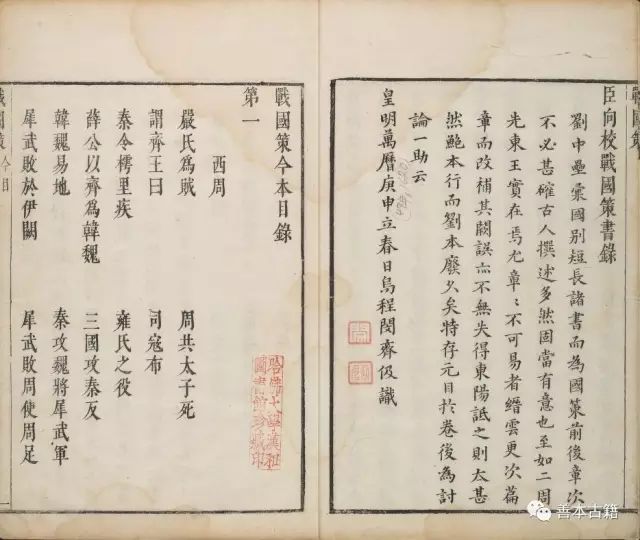 戰國策
臣向校戰國策書錄
劉中壘彙國別短長諸書而為國策前後章次
不必甚確古人撰述多然固當有意也至如二周
先東王實在焉尤章〻不可易者縉雲更次篇
章而改補其闕誤亦不無失得東陽詆之則太甚
然鮑本行而劉本廢久矣特存元目於卷後為討
論一助云
皇明萬曆庚申立春日烏程閔齊伋識
戰國策今本目錄
第一
西周
嚴氏為賊
周共太子死
謂齊王曰
司寇布
秦令樗里疾
雍氏之役
薛公以齊為韓魏
三國攻秦反
韓魏易地
秦攻魏將犀武軍
犀武敗於伊闕
犀武敗周使周足
戰國策 今目
哈佛大學漢和
圖書館珍藏印
善本古籍